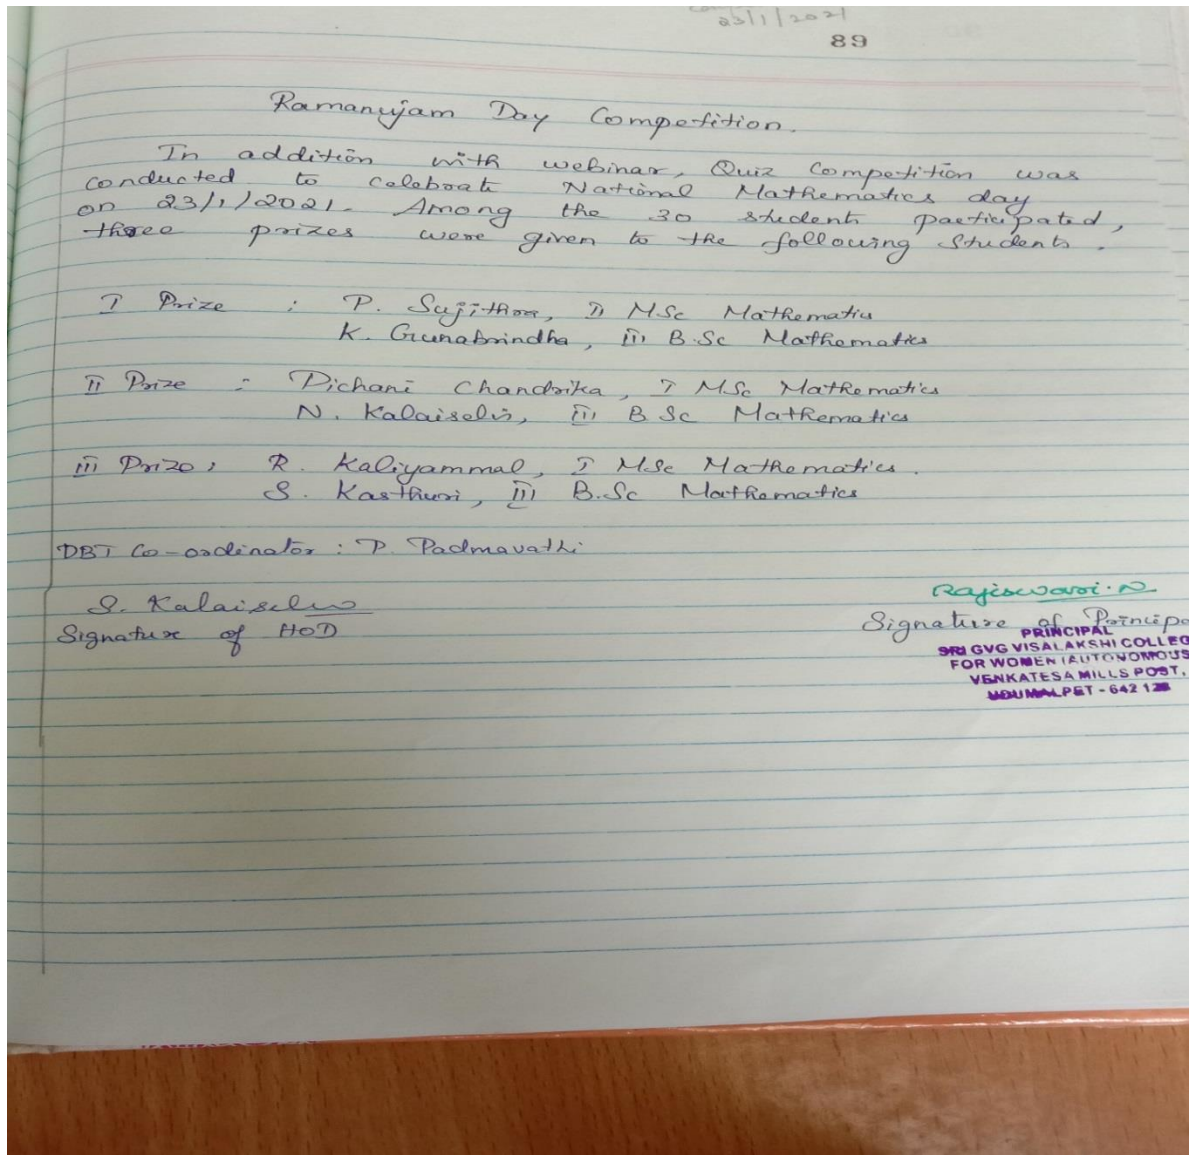 23/1/2021
89
Ramanujam Day Competition.
In addition with webinar, Quiz Competition was
conducted to celebrate National Mathematics day
on 23/1/2021. Among the 30 students participated,
three prizes were given to the following students.
I Prize : P. Sujithra, II MSc Mathematics
K. Gunabrindha, III B.Sc Mathematics
II Prize : Pichani Chandrika, I MSc Mathematics
N. Kalaiselvi, III B Sc Mathematics
III Prize : R. Kaliyammal, I MSc Mathematics.
S. Kasthuri, III B.Sc Mathematics
DBT Co-ordinator : P. Padmavathi
S. Kalaiselvi
Signature of HOD
Rajeswari. N
Signature of Principa
PRINCIPAL
SRI GVG VISALAKSHI COLLEG
FOR WOMEN (AUTONOMOUS
VENKATESA MILLS POST,
UDUMALPET - 642 128